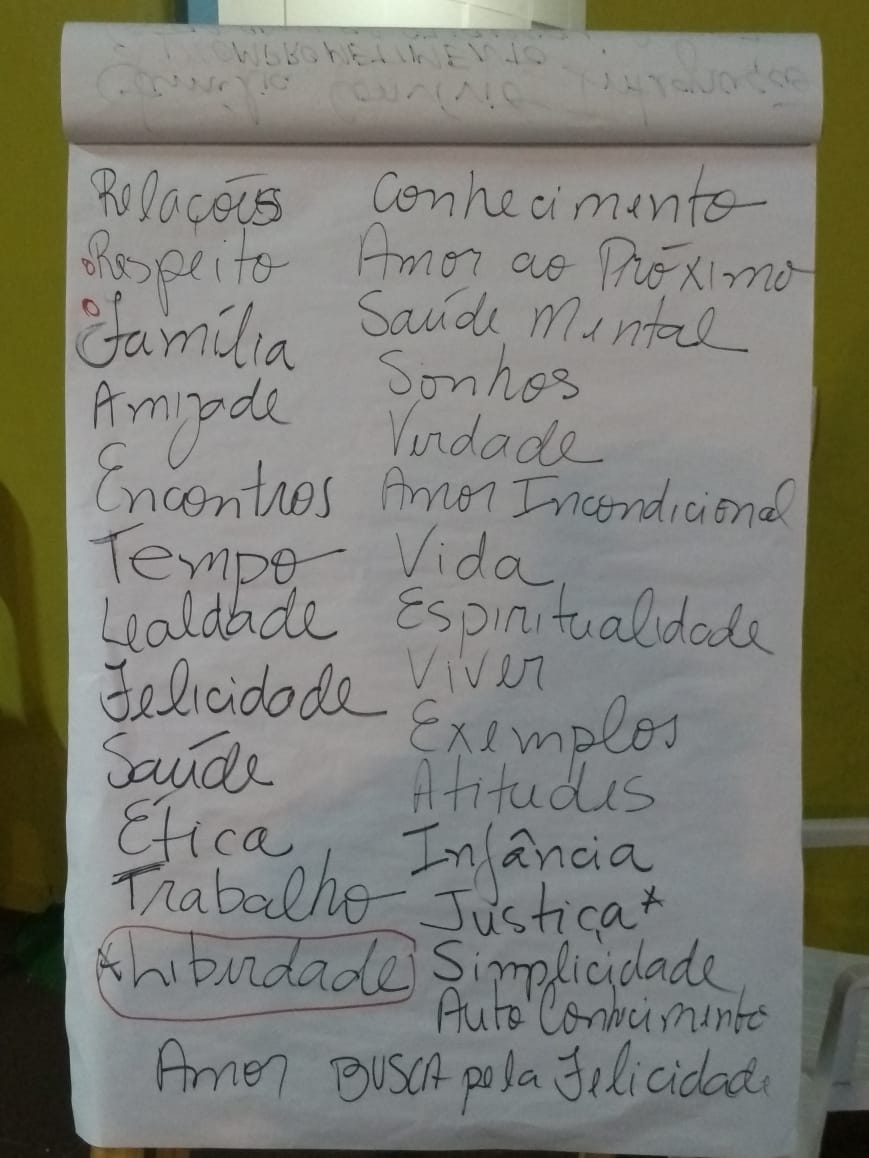 Relações
Respeito
família
Amizade
Encontros
Tempo
Lealdade
Felicidade
Saúde
Ética
Trabalho
*Liberdade
Amor
Conhecimento
Amor ao Próximo
Saúde Mental
Sonhos
Verdade
Amor Incondicional
Vida
Espiritualidade
Viver
Exemplos
Atitudes
Infância
Justiça*
Simplicidade
Auto Conhecimento
BUSCA pela Felicidade